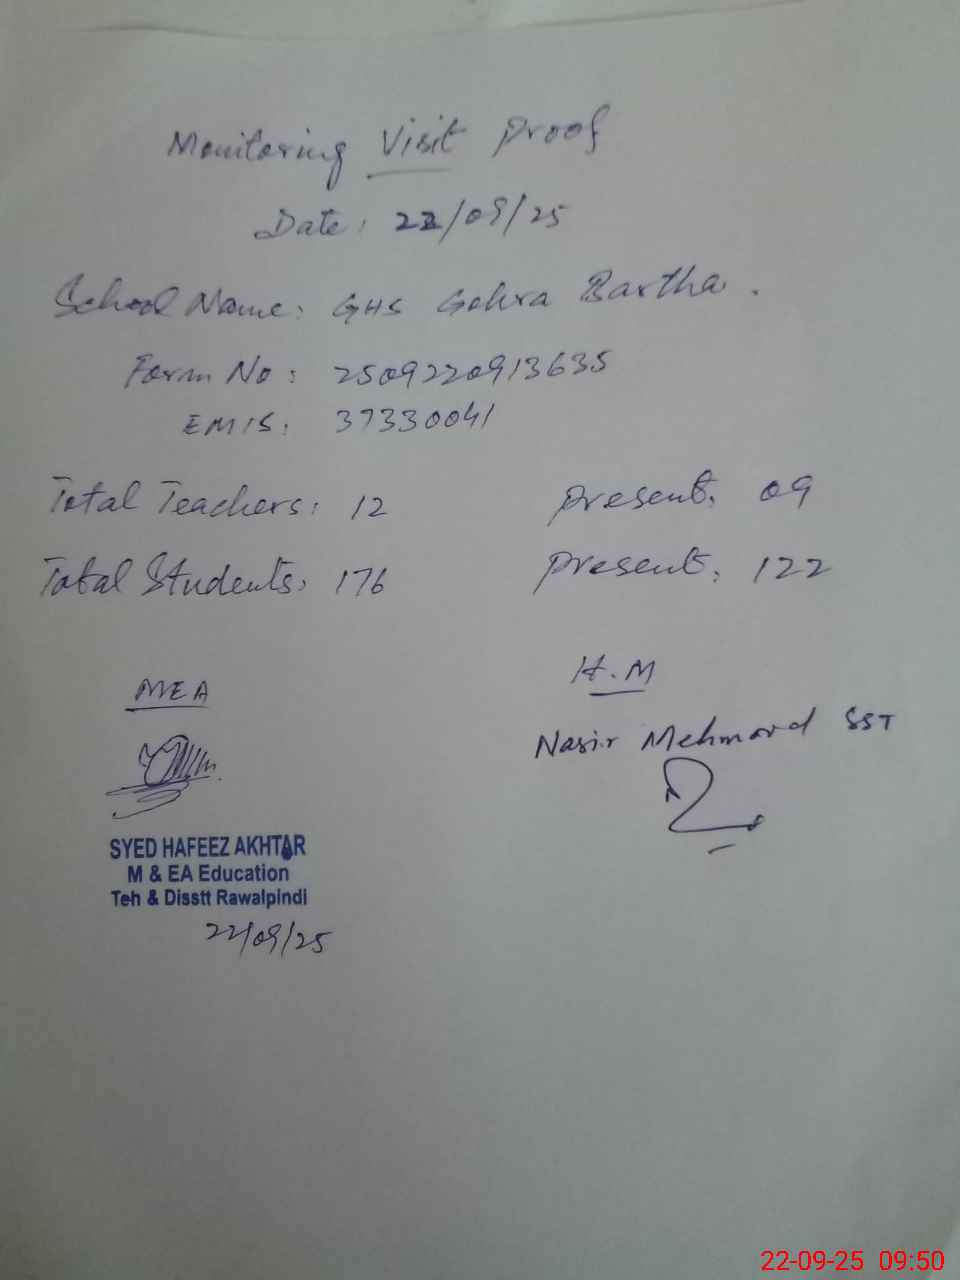 Monitoring Visit Proof
Date: 22/09/25
School Name: GHS Gohra Bartha.
Form No: 2509220913635
EMIS: 37330041
Total Teachers: 12 Present: 09
Total Students: 176 Present: 122
MEA
H.M
Nasir Mehmood SST
SYED HAFEEZ AKHTAR
M & EA Education
Teh & Disstt Rawalpindi
22/09/25
22-09-25 09:50